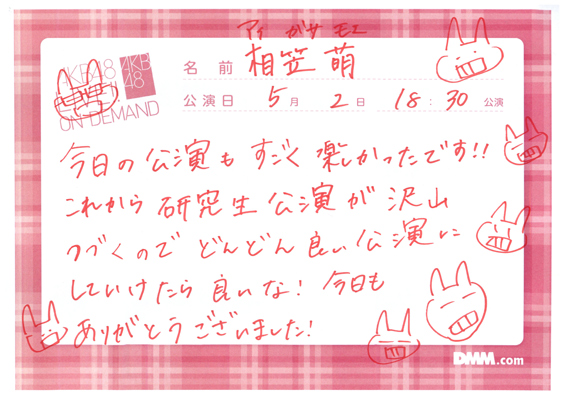 AKB48 AKB48
ON DEMAND
アイ がサ モエ
名前 相笠 萌
公演日 5月 2日 18:30 公演
今日の公演も すごく 楽しかったです!!
これから 研究生 公演 が 沢山
つづくので どんどん 良い公演に
していけたら 良いな! 今日も
ありがとうございました!
DMM.com